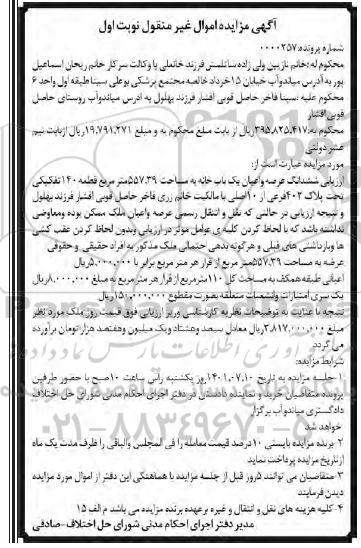 آگهی مزایده اموال غیر منقول نوبت اول
شماره پرونده:۰۰۰۰۲۵۷
محکوم له:خانم نازبین ولی زاده ساتلمش فرزند خانعلی با وکالت سرکار خانم ریحان اسماعیل
پور به آدرس میاندوآب خیابان ۱۵خرداد خالصه مجتمع پزشکی بوعلی سینا طبقه اول واحد ۶
محکوم علیه :سینا فاخر حاصل قوبی افشار فرزند بهلول به آدرس میاندوآب روستای حاصل
قوبی افشار
محکوم به:۳۹۵,۸۲۵,۴۱۷ریال از بابت مبلغ محکوم به و مبلغ ۱۹,۷۹۱,۲۷۱ریال ازبابت نیم
عشر دولتی
مورد مزایده عبارت است از:
ارزیابی ششدانگ عرصه واعیان یک باب خانه به مساحت ۵۵۷,۳۹متر مربع قطعه ۱۴۰تفکیکی
تحت پلاک ۴۰۲فرعی از ۱۰اصلی با مالکیت خانم زری فاخر حاصل قوبی افشار فرزند بهلول
و نتیجه ارزیابی در حالتی که نقل و انتقال رسمی عرصه واعیان ملک ممکن بوده ومعاوضی
نداشته باشد که با لحاظ کردن کلیه ی عوامل موثر در ارزیابی وبدون لحاظ کردن عقب کشی
ها وبازداشتی های قبلی و هرگونه بدهی احتمالی ملک مذکور به افراد حقیقی و حقوقی
عرصه به مساحت ۵۵۷,۳۹متر مربع از قرار هر متر مربع برابر با ۵,۰۰۰,۰۰۰ریال
اعیانی طبقه همکف به مساحت کل ۱۱۰مترمربع از قرار هر متر مربع به مبلغ ۸,۰۰۰,۰۰۰ریال
یک سری امتیازات وانشعابات متعلقه بصورت مقطوع ۱۵۰,۰۰۰,۰۰۰ریال
نتیجه با عنایت به توضیحات نظریه کارشناسی وریز ارزیابی فوق قیمت روز ملک مورد نظر
مبلغ ۳,۸۱۷,۰۰۰,۰۰۰ریال معادل سیصد وهشتاد ویک میلیون وهفتصد هزار تومان برآورده
می گردد
شرایط مزایده:
۱ جلسه مزایده به تاریخ ۱۴۰۱,۰۷,۱۰روز یکشنبه راس ساعت ۱۰صبح با حضور طرفین
پرونده متقاضیان خرید و نماینده دادستان در دفتر اجرای احکام مدنی شورای حل اختلاف
دادگستری میاندوآب برگزار
خواهد شد
۲ برنده مزایده بایستی ۱۰درصد قیمت معامله را فی المجلس والباقی را ظرف مدت یک ماه
ازتاریخ مزایده پرداخت نماید
۳ متقاضیان می توانند ۵روز قبل از جلسه مزایده با هماهنگی این دفتر از اموال مورد مزایده
دیدن فرمایند
۴ کلیه هزینه های نقل و انتقال و غیره برعهده برنده مزایده می باشد م الف ۱۵
مدیر دفتر اجرای احکام مدنی شورای حل اختلاف-صادقی
۰۲۱-۸۸۳۴۹۶۷۰